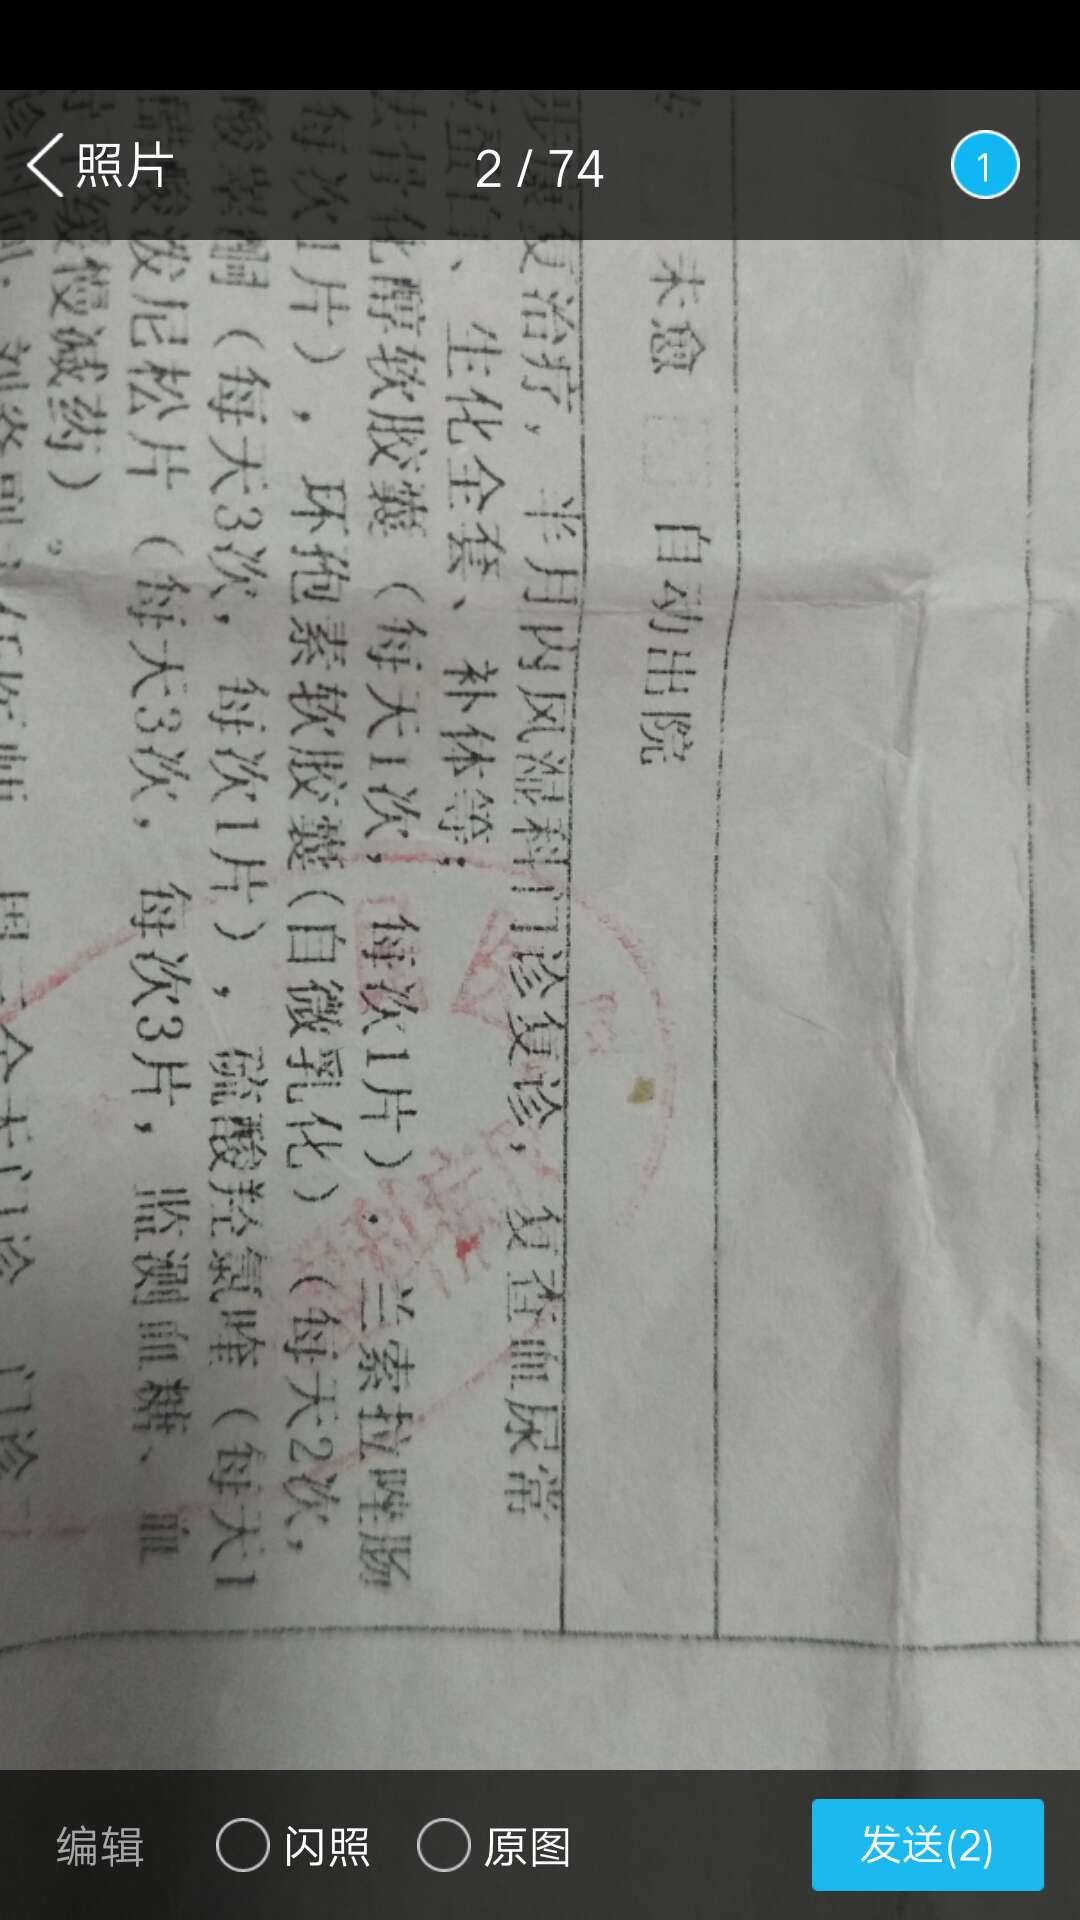 照片
2 / 74
1
未愈 自动出院
复治疗，半月内风湿科门诊复诊，复查血尿常
、生化全套、补体等；
化醇软胶囊（每天1次，每次1片），兰索拉唑肠
每次1片），环孢素软胶囊(自微乳化）（每天2次，
酸苯酮（每天3次，每次1片），硫酸羟氯喹（每天1
泼尼松片（每天3次，每次3片，监测血糖、血
缓慢减药）。
门诊
编辑
闪照
原图
发送(2)